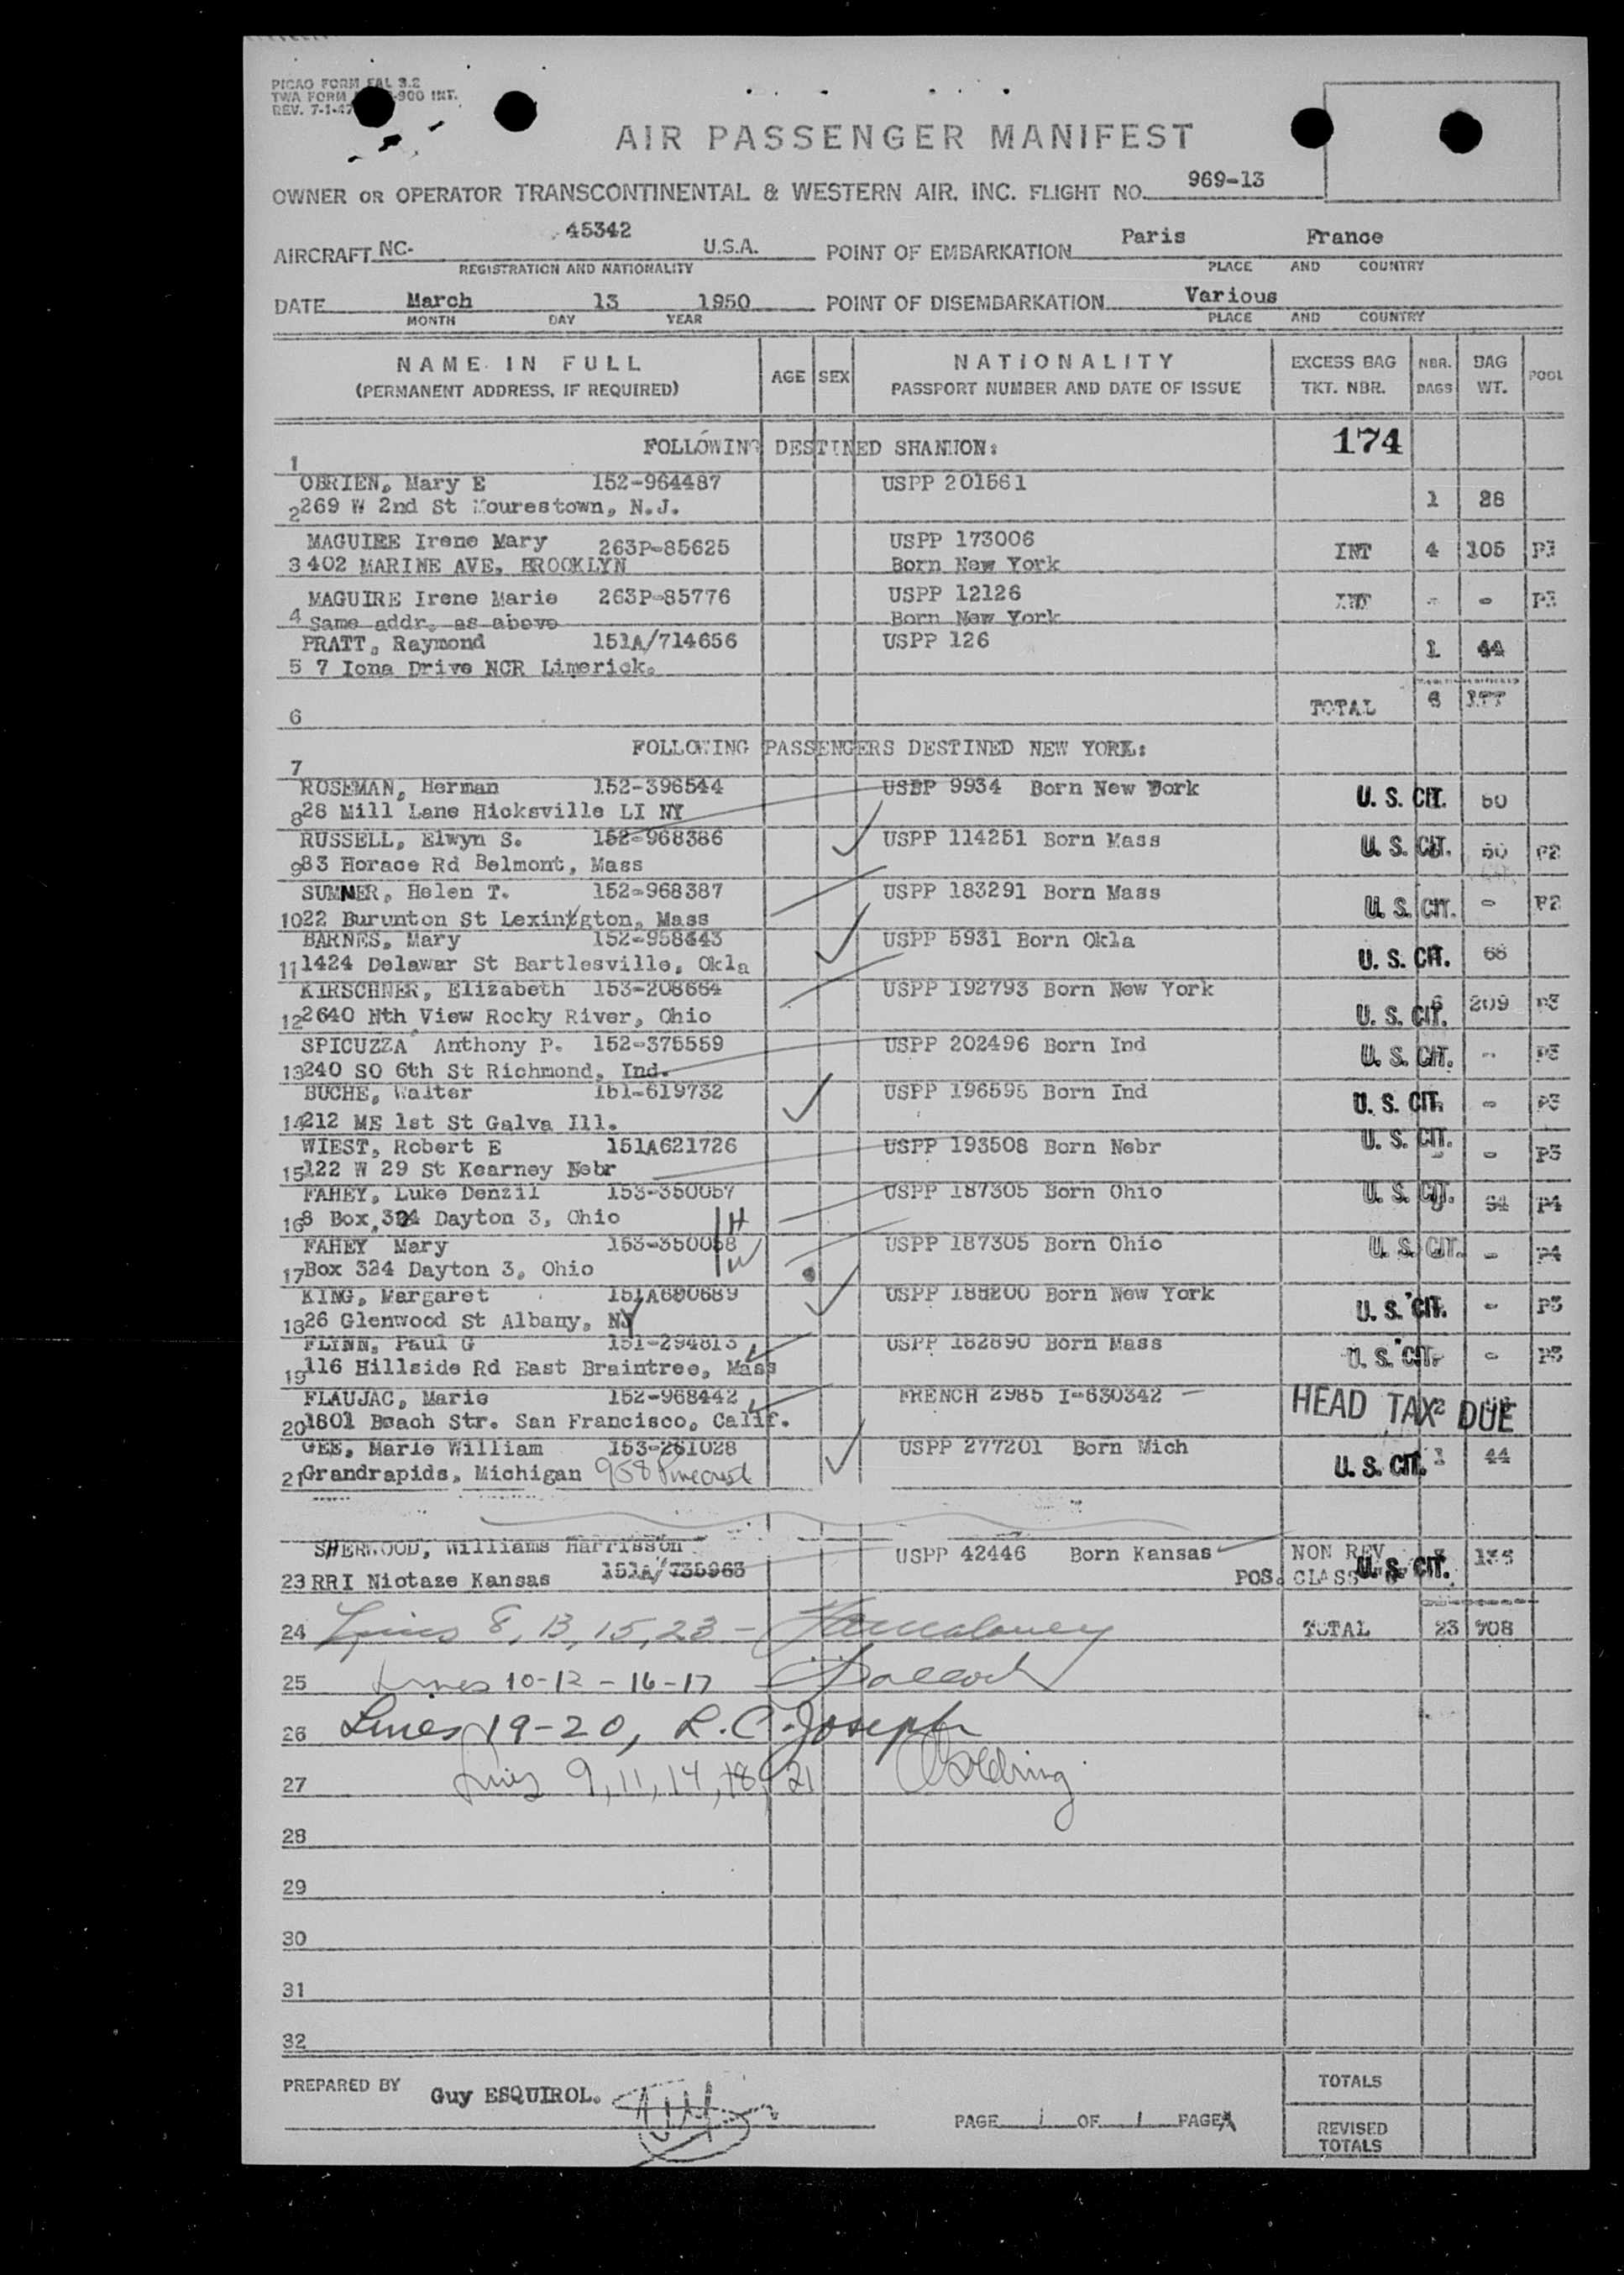 PICAO FORM FAL 3.2
TWA FORM -900 INT.
REV. 7-1-47
AIR PASSENGER MANIFEST
OWNER OR OPERATOR TRANSCONTINENTAL & WESTERN AIR, INC. FLIGHT NO. 969-13
AIRCRAFT NC- 45342 U.S.A. POINT OF EMBARKATION Paris France
REGISTRATION AND NATIONALITY PLACE AND COUNTRY
DATE March 13 1950 POINT OF DISEMBARKATION Various
MONTH DAY YEAR PLACE AND COUNTRY
NAME IN FULL AGE SEX NATIONALITY EXCESS BAG NBR. BAG POOL
(PERMANENT ADDRESS, IF REQUIRED) PASSPORT NUMBER AND DATE OF ISSUE TKT. NBR. BAGS WT.
1 FOLLOWING DESTINED SHANNON: 174
OBRIEN, Mary E 152-964487 USPP 201561
2 269 W 2nd St Mourestown, N.J. 1 28
MAGUIRE Irene Mary 263P-85625 USPP 173006 INT 4 105 P1
3 402 MARINE AVE, BROOKLYN Born New York
MAGUIRE Irene Marie 263P-85776 USPP 12126 INT - - P1
4 Same addr. as above Born New York
PRATT, Raymond 151A/714656 USPP 126 1 44
5 7 Iona Drive NCR Limerick.
6 TOTAL 6 177
7 FOLLOWING PASSENGERS DESTINED NEW YORK:
ROSEMAN, Herman 152-396544 USPP 9934 Born New York
8 28 Mill Lane Hicksville LI NY U. S. CIT. 50
RUSSELL, Elwyn S. 152-968386 USPP 114251 Born Mass
9 83 Horace Rd Belmont, Mass U. S. CIT. 50 P2
SUMNER, Helen T. 152-968387 USPP 183291 Born Mass
10 22 Burunton St Lexington, Mass U. S. CIT. - P2
BARNES, Mary 152-958443 USPP 5931 Born Okla
11 1424 Delawar St Bartlesville, Okla U. S. CIT. 66
KIRSCHNER, Elizabeth 153-208664 USPP 192793 Born New York
12 2640 Nth View Rocky River, Ohio U. S. CIT. 6 209 P3
SPICUZZA Anthony P. 152-375559 USPP 202496 Born Ind
13 240 SO 6th St Richmond, Ind. U. S. CIT. - P3
BUCHE, Walter 151-619732 USPP 196595 Born Ind
14 212 ME 1st St Galva Ill. U. S. CIT. - P3
WIEST, Robert E 151A621726 USPP 193508 Born Nebr
15 122 W 29 St Kearney Nebr U. S. CIT. - - P3
FAHEY, Luke Denzil 153-350057 USPP 187305 Born Ohio
16 8 Box 324 Dayton 3, Ohio U. S. CIT. 94 P4
FAHEY Mary 153-350058 H W USPP 187305 Born Ohio
17 Box 324 Dayton 3, Ohio U. S. CIT. - P4
KING, Margaret 151A690689 USPP 185200 Born New York
18 26 Glenwood St Albany, NY U. S. CIT. - P3
FLINN, Paul G 151-294813 USPP 182890 Born Mass
19 116 Hillside Rd East Braintree, Mass U. S. CIT. - P3
FLAUJAC, Marie 152-968442 FRENCH 2985 I-630342
20 1801 Beach Str. San Francisco, Calif. HEAD TAX DUE 2
GEE, Marie William 153-261028 USPP 277201 Born Mich
21 Grandrapids, Michigan 958 Pinecrest U. S. CIT. 1 44
SHERWOOD, Williams Harrisson USPP 42446 Born Kansas NON REV
23 RR1 Niotaze Kansas 151A/735963 POS. CLASS U. S. CIT. 135
24 Lines 8, 13, 15, 23 - TOTAL 23 708
25 Lines 10-12-16-17
26 Lines 19-20, R. C. Joseph
27 Lines 9, 11, 14, 18, 21 Golding
28
29
30
31
32
PREPARED BY Guy ESQUIROL. TOTALS
PAGE 1 OF 1 PAGES REVISED
TOTALS